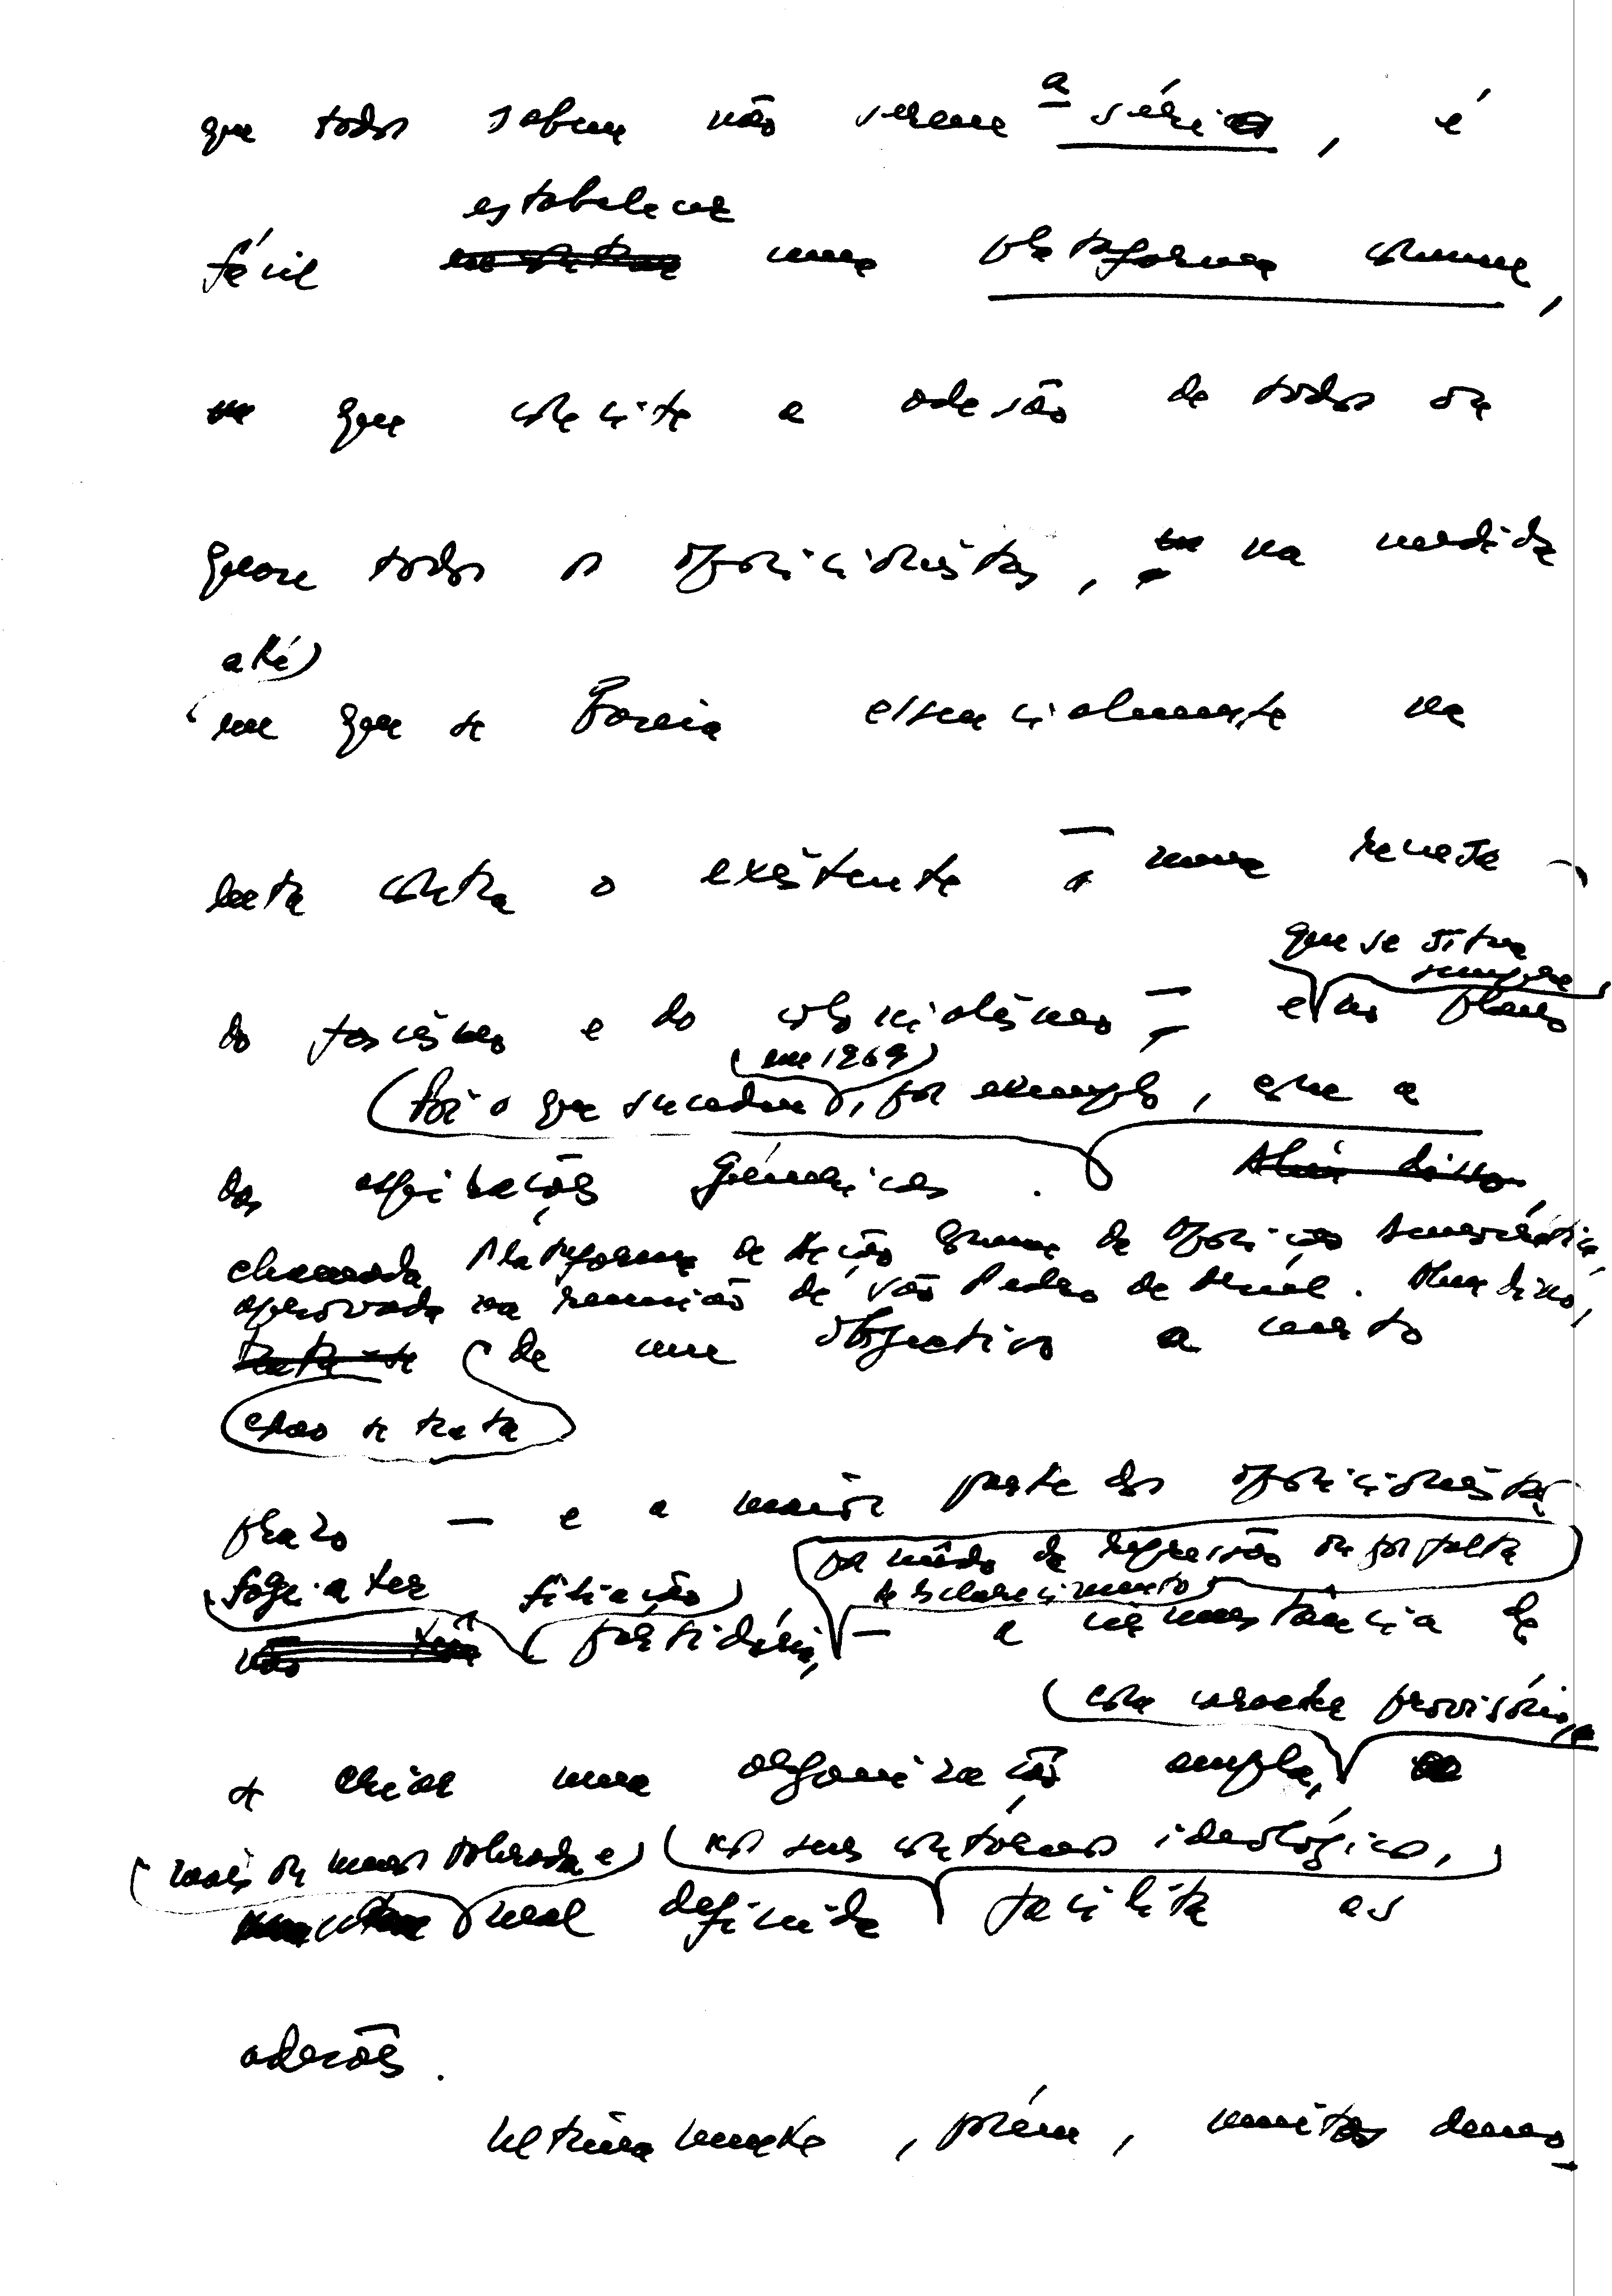 que todos sabem não serem a sério, é
estabelecer
fácil uma plataforma comum,
que concite a adesão de todos ou
quase todos os oposicionistas, na medida
até
em que se baseia essencialmente na
luta contra o existente — numa
que se situa
sempre
do fascismo e do colonialismo — e no plano
(em 1969)
foi o que sucedeu, por exemplo, com a
das aspirações genéricas. Além disso,
chamada Plataforma de Acção Comum da Oposição Democrática,
aprovada na reunião de São Pedro de Muel. Além disso,
trata-se de um objectivo a curto
como se trata
prazo — e a maior parte dos oposicionistas
por mêdo da repressão ou por falta
fogia a ter filiação de esclarecimento
não partidária, — a circunstância de
com carácter provisório,
se criar uma organização ampla,
mais ou menos tolerada e nos seus contornos ideológicos,
mal definida facilita as
adesões.
Ultimamente, porém, muitos demo-